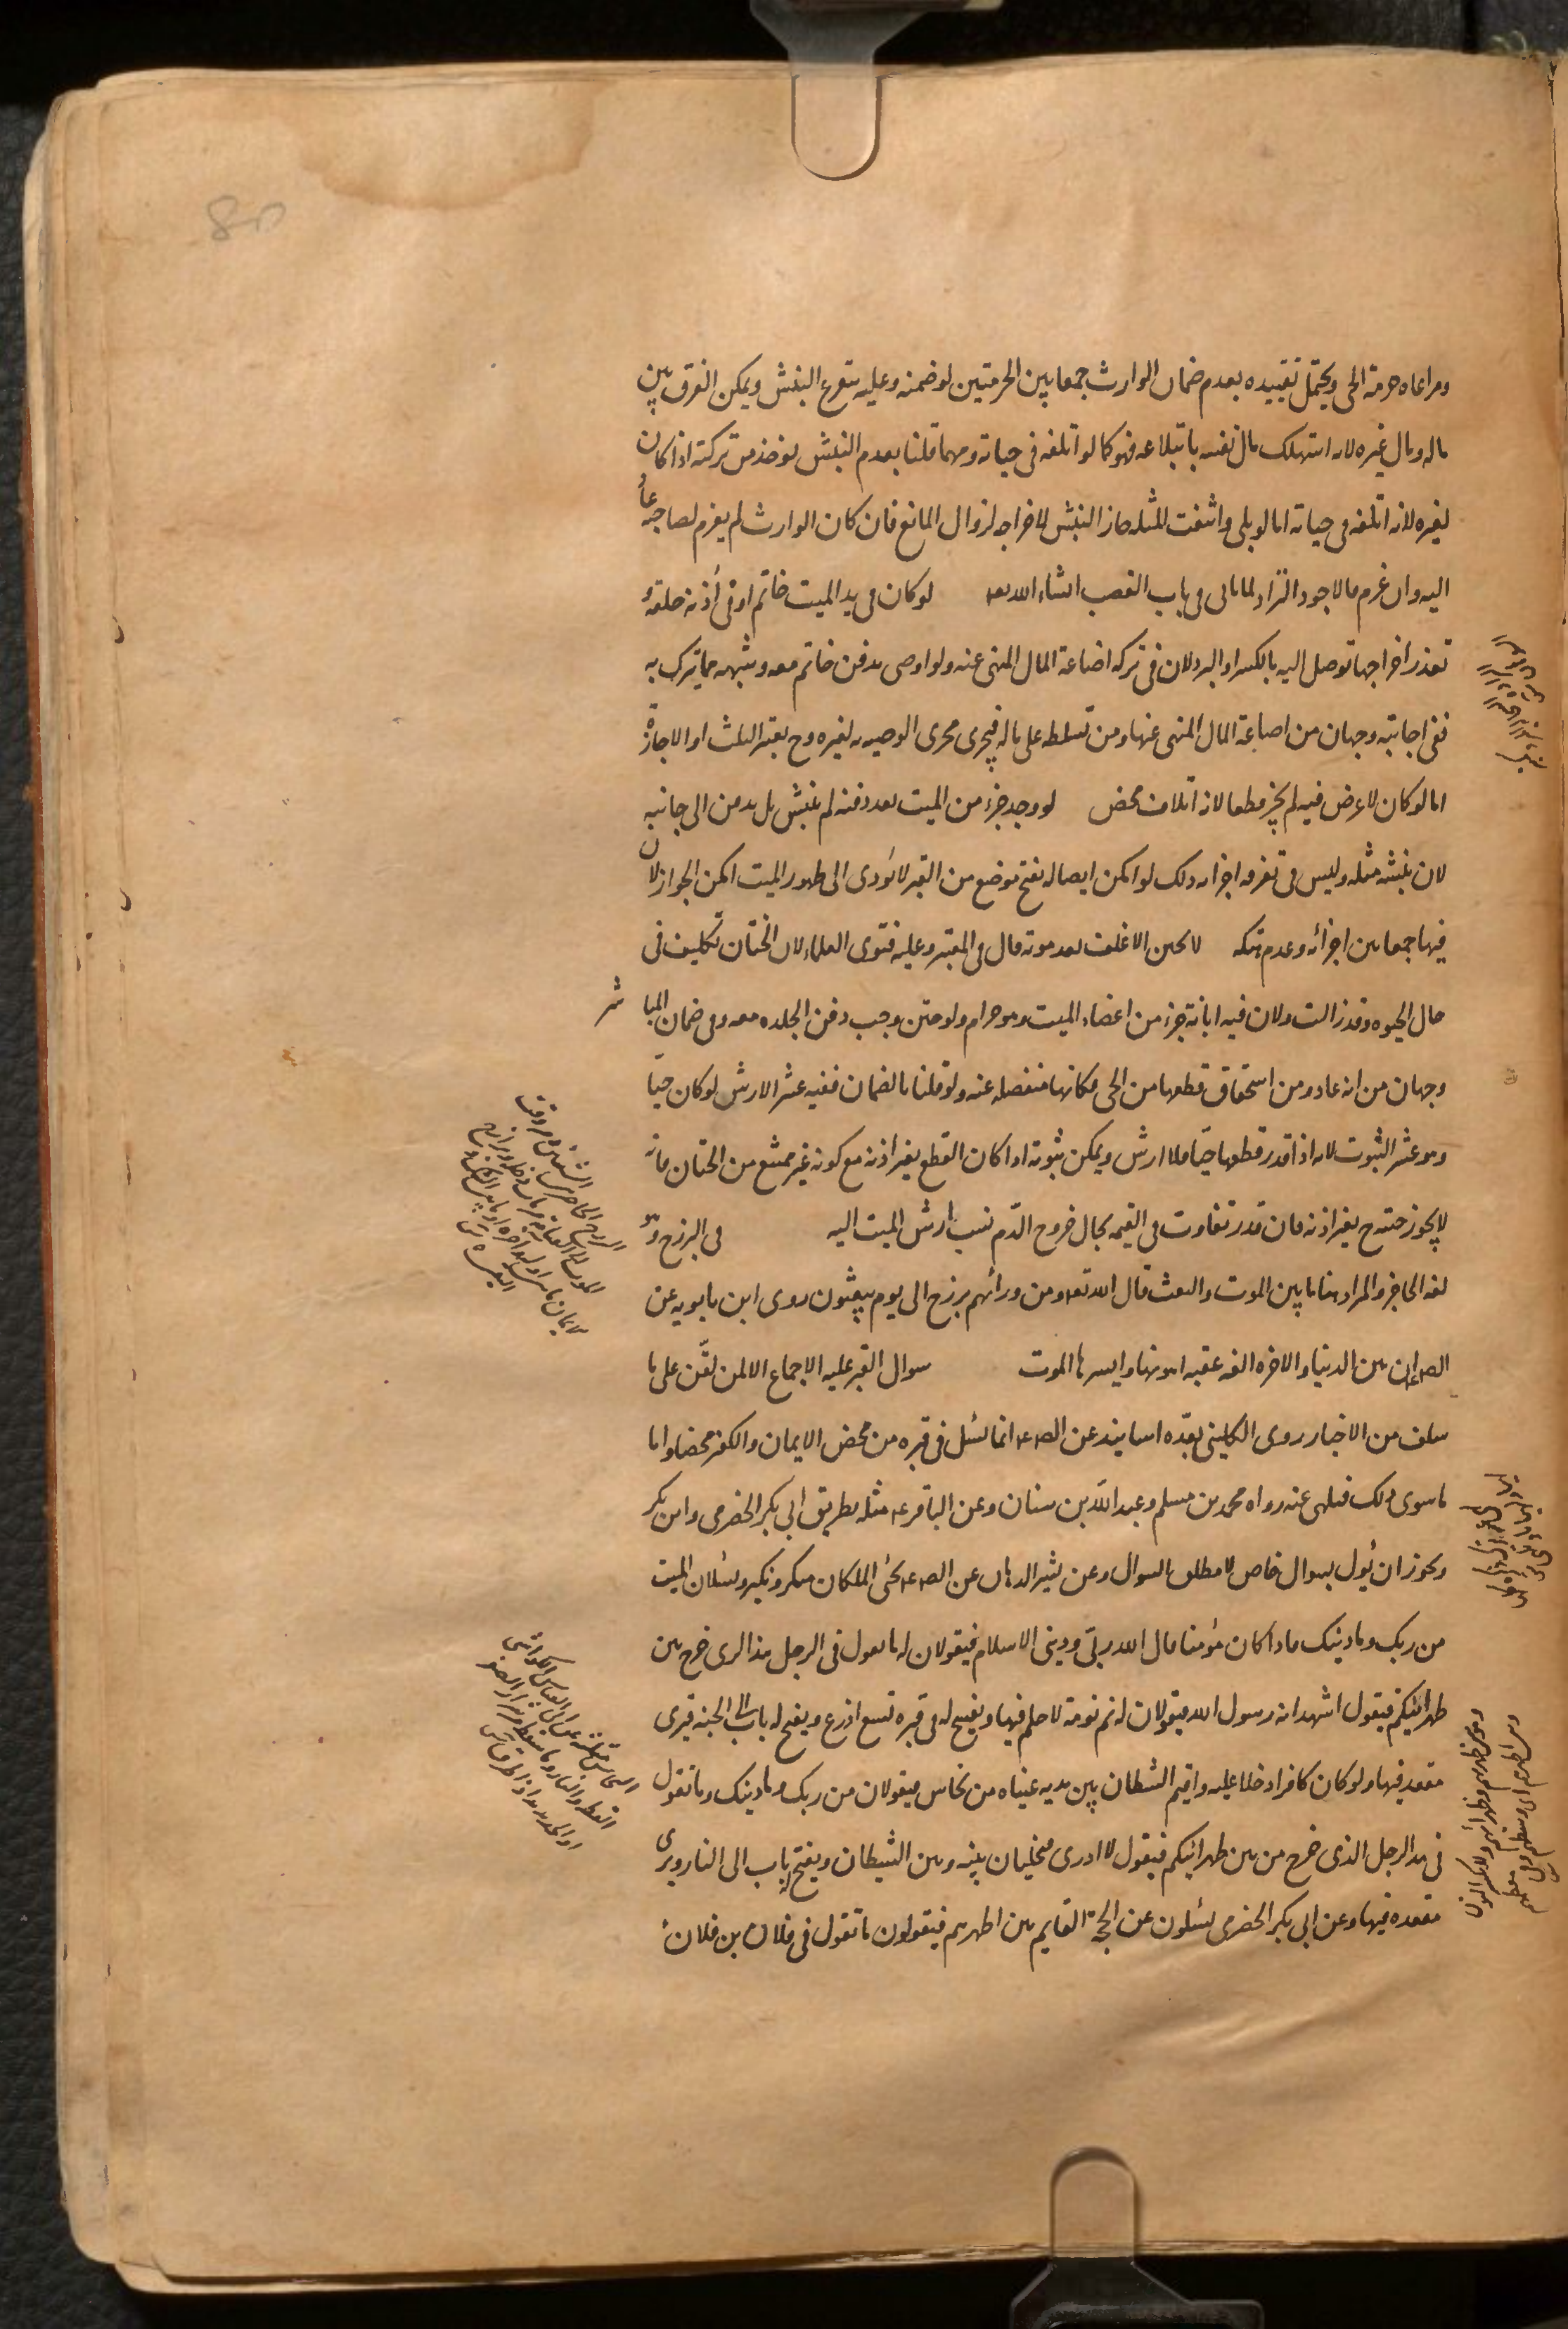 ومراعاه حرمة الحى ويحتمل تقييده بعدم ضمان الوارث جمعا بين الحرمتين لو ضمنه وعليه يتفرع النبش ويمكن الفرق بين
ماله ومال غيره لانه استهلك مال نفسه بابتلاعه فهو كما لو اتلفه فى حياته ومهما قلنا بعدم النبش يؤخذ من تركته اذا كان
لغيره لانه اتلفه فى حياته اما لو بلى وانتفت المثله جاز النبش لاخراجه لزوال المانع فان كان الوارث لم يغرم لصاحبه عاد
اليه وان غرم فالاجود التراد لما ياتى فى باب الغصب انشاء الله تعه لو كان فى يد الميت خاتم او فى أذنه حلقة و
تعذر اخراجها توصل اليه بالكسر او البرد لان فى تركه اضاعة المال المنهى عنه ولو اوصى بدفن خاتم معه وشبهه مما يتبرك به
ففى اجابته وجهان من اضاعة المال المنهى عنها ومن تسلطه على ماله فيجرى مجرى الوصيه به لغيره وح يعتبر الثلث او الاجازة
اما لو كان لا غرض فيه لم يجز قطعا لانه اتلاف محض لو وجد جزء من الميت بعد دفنه لم ينبش بل يدفن الى جانبه
لان نبشه مثله وليس فى تفرقه اجزائه ذلك لو امكن ايصاله بفتح موضع من القبر لا يؤدى الى ظهور الميت امكن الجواز لان
فيها جمعا بين اجزائه وعدم هتكه لا يختن الاغلف بعد موته قال فى المعتبر وعليه فتوى العلماء لان الختان تكليف فى
حال الحيوه وقد زالت ولان فيه ابانة جزء من اعضاء الميت وهو حرام ولو ختن وجب دفن الجلده معه وفى ضمان المباشر
وجهان من انه عاد ومن استحقاق قطعها من الحى فكانها منفصله عنه ولو قلنا بالضمان ففيه عشر الارش لو كان حيّا
وهو عسر الثبوت لانه اذا قدر قطعها حيّا فلا ارش ويمكن ثبوته اذا كان القطع بغير اذنه مع كونه غير ممتنع من الختان فانه
لا يجوز ختنه ح بغير اذنه فان قدر تفاوت فى القيمه بحال خروج الدّم نسب ارش الميت اليه فى البرزخ وهو
لغه الحاجز والمراد هنا ما بين الموت والبعث قال الله تعه ومن ورائهم برزخ الى يوم يبعثون روى ابن بابويه عن
الصه ع ان بين الدنيا والاخره الف عقبه اهونها وايسرها الموت سوال القبر عليه الاجماع الا لمن لقّن على ما
سلف من الاخبار روى الكلينى بعدّه اسانيد عن الصه ع انما يسئل فى قبره من محض الايمان والكفر محضا واما
ما سوى ذلك فيلهى عنه رواه محمد بن مسلم وعبد الله بن سنان وعن الباقر ع مثله بطريق ابى بكر الحضرمى وابن بكير
ويجوز ان يؤل بسوال خاص لا مطلق السوال وعن بشير الدهان عن الصه ع يجئ الملكان منكر ونكير ويسئلان الميت
من ربك وما دينك فاذا كان مؤمنا قال الله ربى ودينى الاسلام فيقولان له ما تقول فى الرجل هذا الذى خرج بين
ظهرانيكم فيقول اشهد انه رسول الله فيقولان له نم نومة لا حلم فيها ويفسح له فى قبره تسع اذرع ويفتح له باب الى الجنه فيرى
مقعده فيها ولو كان كافرا دخلا عليه واقيم الشيطان بين يديه عيناه من نحاس فيقولان من ربك وما دينك وما تقول
فى هذا الرجل الذى خرج من بين ظهرانيكم فيقول لا ادرى فيخليان بينه وبين الشيطان ويفتح له باب الى النار ويرى
مقعده فيها وعن ابى بكر الحضرمى يسئلون عن الحجة القايم بين اظهرهم فيقولون ما تقول فى فلان بن فلان